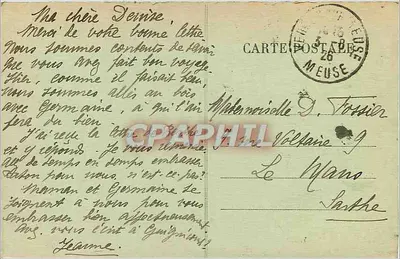 Ma chère Denise,
Merci de votre bonne lettre
Nous sommes contents de savoir
que vous avez fait bon voyage
Hier, comme il faisait beau,
nous sommes allés au bois
avec Germaine, à qui l'air
fera du bien.
J'ai reçu la lettre de
et y réponds. Je vous
de temps en temps embrasser
pour nous, n'est-ce pas?
Maman et Germaine se
joignent à nous pour vous
embrasser bien affectueusement
Jeanne.
CARTE POSTALE
26
MEUSE
Mademoiselle D. Fossier
7 rue Voltaire 9
Le Mans
Sarthe
CPAPHIL.com